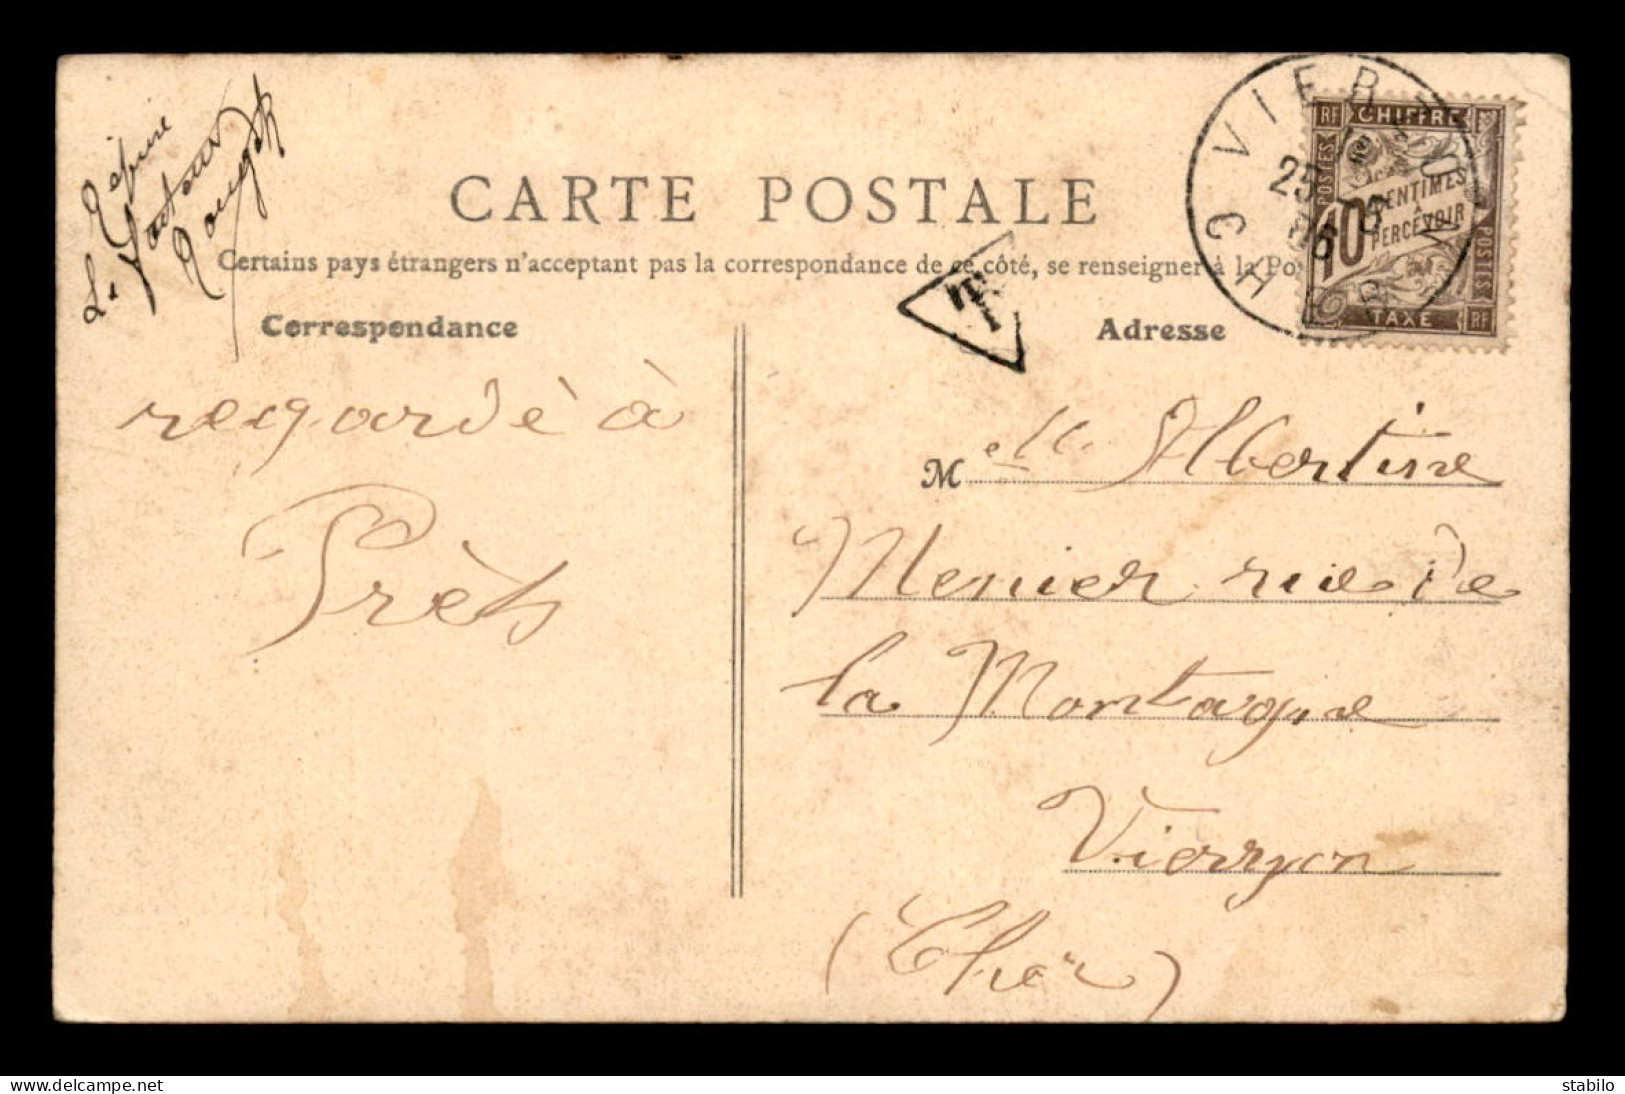 CARTE POSTALE
Certains pays étrangers n'acceptant pas la correspondance de ce côté, se renseigner à la Po
Correspondance
Adresse
regardé à
Près
T
VIERZON
CHER
25
06
RF CHIFFRE
POSTES
10 CENTIMES
A
PERCEVOIR
POSTES
TAXE RF
Melle Albertine
Menier rue de
la Montagne
Vierzon
(Cher)
https://www.delcampe.net
stabilo